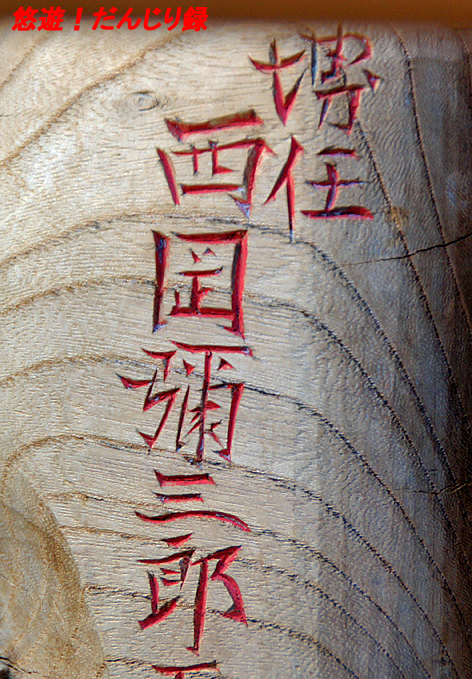 悠遊！だんじり録
堺住
西岡彌三郎